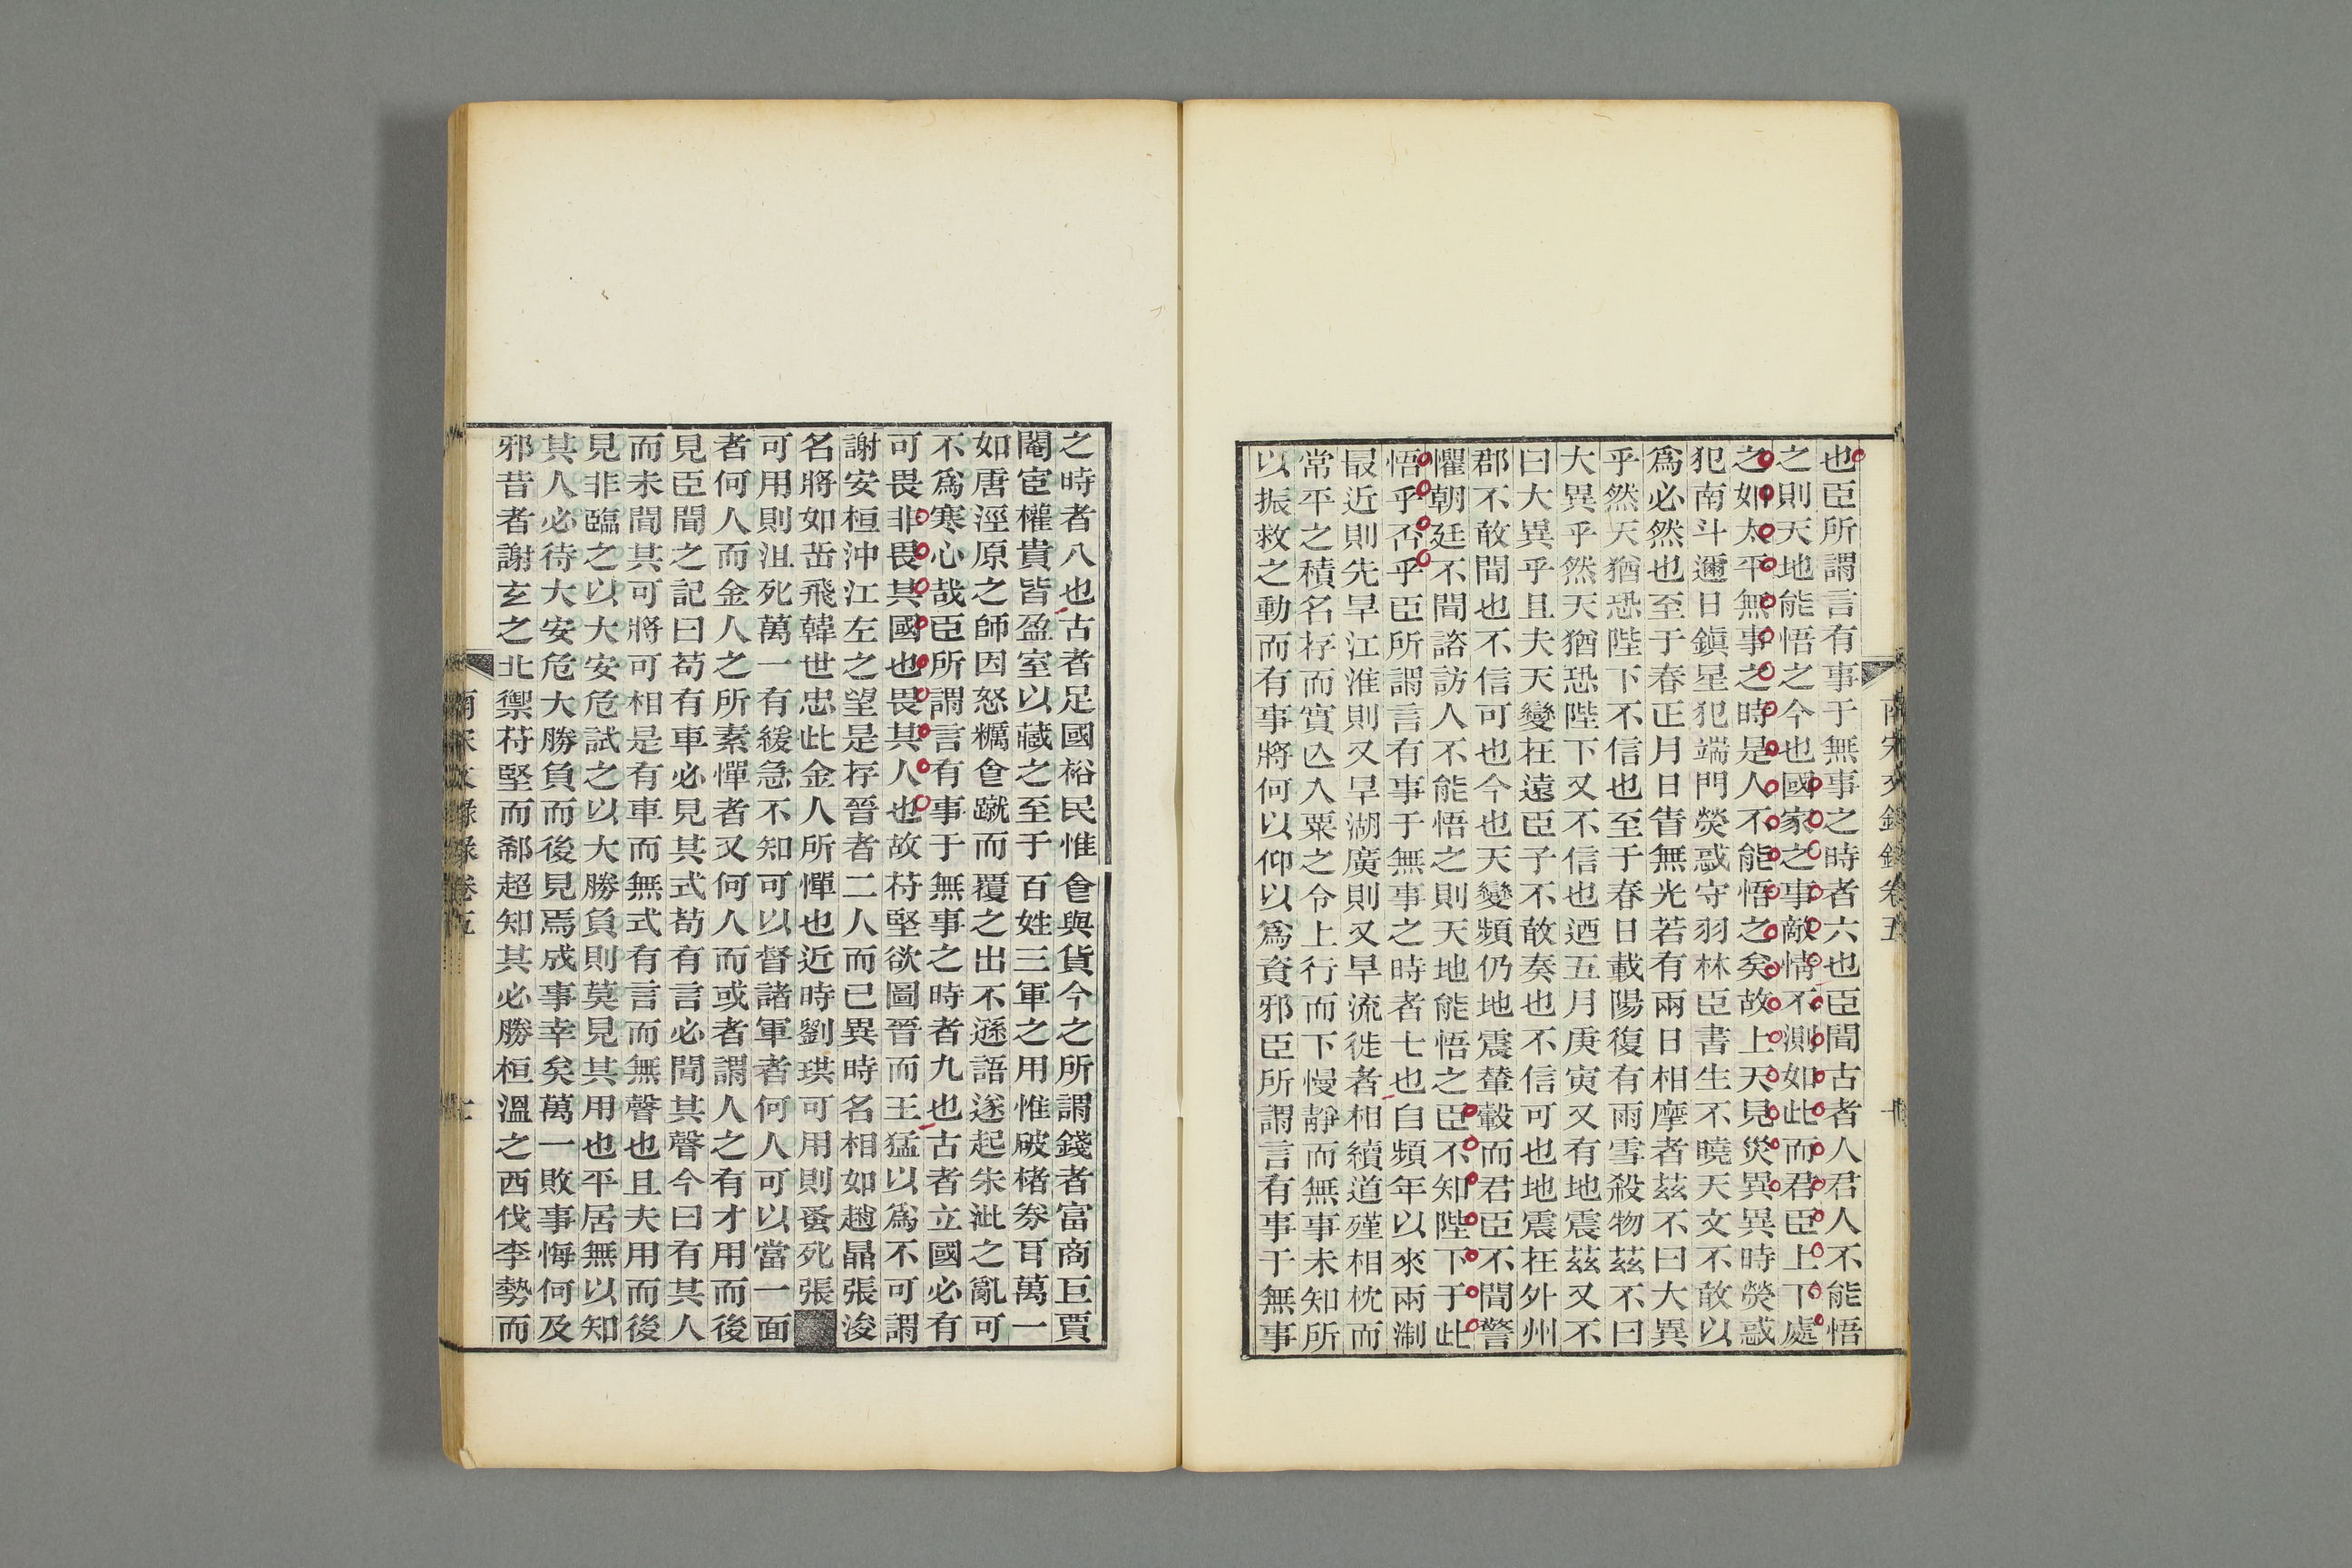 也臣所謂言有事于無事之時者六也臣聞古者人君人不能悟
之則天地能悟之今也國家之事敵情不測如此而君臣上下處
之如太平無事之時是人不能悟之矣故上天見災異異時熒惑
犯南斗邇日鎮星犯端門熒惑守羽林臣書生不曉天文不敢以
爲必然也至于春正月日眚無光若有兩日相摩者茲不曰大異
乎然天猶恐陛下不信也至于春日載陽復有雨雪殺物茲不曰
大異乎然天猶恐陛下又不信也迺五月庚寅又有地震茲又不
曰大異乎且夫天變在遠臣子不敢奏也不信可也地震在外州
郡不敢聞也不信可也今也天變頻仍地震輦轂而君臣不聞警
懼朝廷不聞諮訪人不能悟之則天地能悟之臣不知陛下于此
悟乎否乎臣所謂言有事于無事之時者七也自頻年以來兩淛
最近則先旱江淮則又旱湖廣則又旱流徙者相續道殣相枕而
常平之積名存而實亾入粟之令上行而下慢靜而無事未知所
以振救之動而有事將何以仰以爲資邪臣所謂言有事于無事
南宋文錄錄卷五
之時者八也古者足國裕民惟食與貨今之所謂錢者富商巨賈
閹宦權貴皆盈室以藏之至于百姓三軍之用惟破楮券耳萬一
如唐涇原之師因怒糲食蹴而覆之出不遜語遂起朱泚之亂可
不爲寒心哉臣所謂言有事于無事之時者九也古者立國必有
可畏非畏其國也畏其人也故苻堅欲圖晉而王猛以爲不可謂
謝安桓沖江左之望是存晉者二人而已異時名相如趙鼎張浚
名將如岳飛韓世忠此金人所憚也近時劉珙可用則蚤死張
可用則沮死萬一有緩急不知可以督諸軍者何人可以當一面
者何人而金人之所素憚者又何人而或者謂人之有才用而後
見臣聞之記曰苟有車必見其式苟有言必聞其聲今曰有其人
而未聞其可將可相是有車而無式有言而無聲也且夫用而後
見非臨之以大安危試之以大勝負則莫見其用也平居無以知
其人必待大安危大勝負而後見焉成事幸矣萬一敗事悔何及
邪昔者謝玄之北禦苻堅而郗超知其必勝桓溫之西伐李勢而
南宋文錄錄卷五